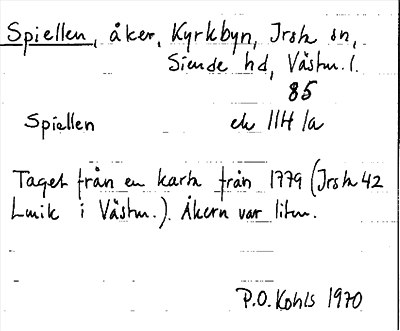 Spiellen, åker, Kyrkbyn, Irsta sn,
Siende hd, Västm. l.
85
Spiellen ek 11H 1a
Taget från en karta från 1779 (Irsta 42
Lmtk i Västm.). Åkern var liten.
P.O. Kohls 1970